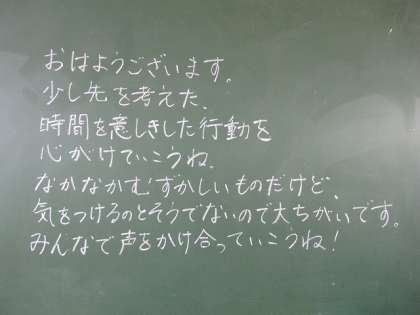 おはようございます。
少し先を考えた、
時間を意しきした行動を
心がけていこうね。
なかなかむずかしいものだけど、
気をつけるのとそうでないので大ちがいです。
みんなで声をかけ合っていこうね!